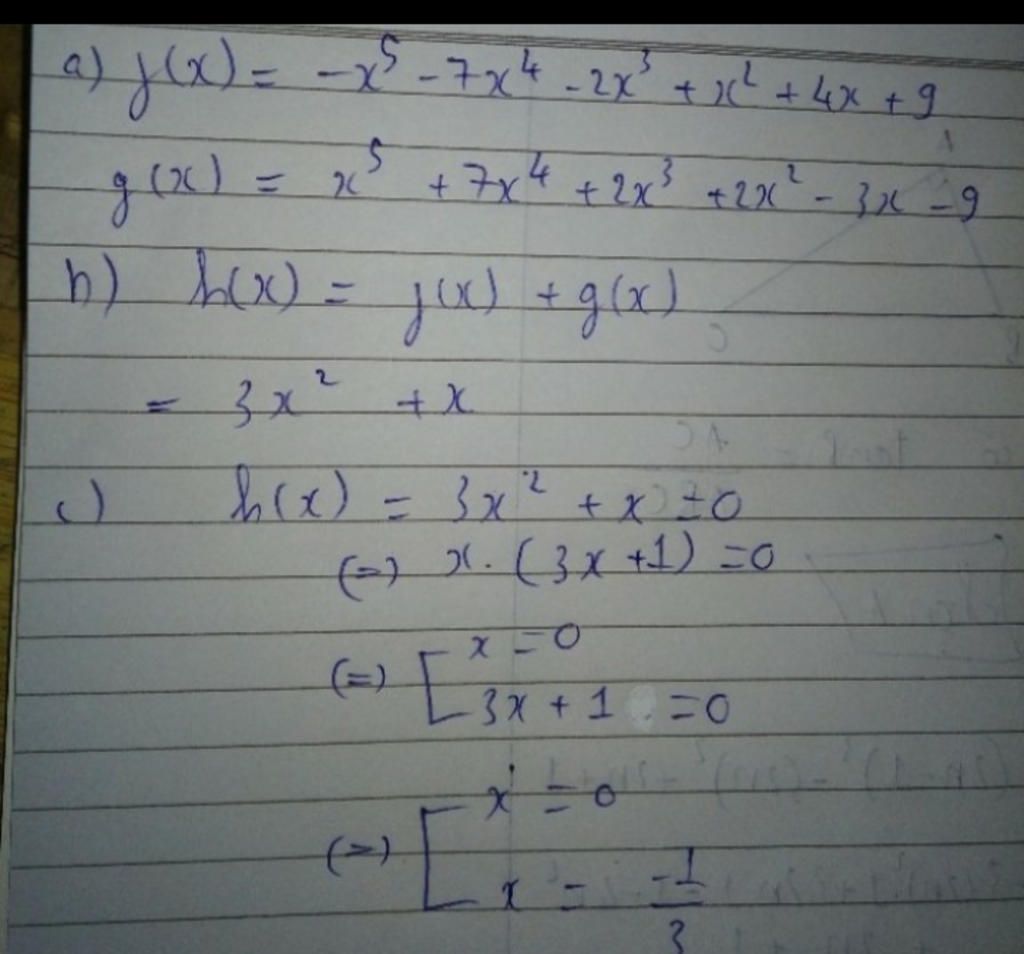 a) f(x) = -x⁵ - 7x⁴ - 2x³ + x² + 4x + 9
g(x) = x⁵ + 7x⁴ + 2x³ + 2x² - 3x - 9
b) h(x) = f(x) + g(x)
= 3x² + x
c) h(x) = 3x² + x = 0
(=) x. (3x + 1) = 0
(=) [ x = 0
3x + 1 = 0
(=) [ x = 0
x = -1/3